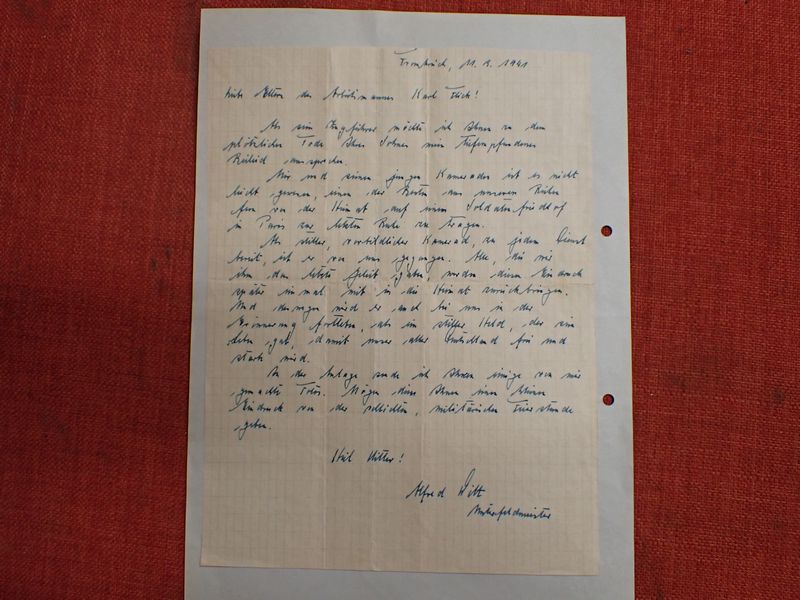 Frankreich, 11. 2. 1941
Liebe Eltern des Arbeitsmannes Karl !
Als sein Zugführer möchte ich Ihnen zu dem
plötzlichen Tode Ihres Sohnes mein tiefempfundenes
Beileid aussprechen.
Mir und seinen jungen Kameraden ist es nicht
leicht gewesen, einen der Besten aus unseren Reihen
fern von der Heimat auf einem Soldatenfriedhof
in Paris zur letzten Ruhe zu tragen.
Als stiller, vorbildlicher Kamerad, zu jedem Dienst
bereit, ist er von uns gegangen. Alle, die wir
ihm das letzte Geleit gaben, werden diesen Eindruck
später einmal mit in die Heimat zurückbringen.
Und deswegen wird er auch bei uns in der
Erinnerung fortleben, als ein stiller Held, der sein
Leben gab, damit unser aller Deutschland frei und
stark wird.
In der Anlage sende ich Ihnen einige von mir
gemachte Fotos. Mögen diese Ihnen einen kleinen
Eindruck von der schlichten, militärischen Feierstunde
geben.
Heil Hitler!
Alfred Witt
Unterfeldmeister